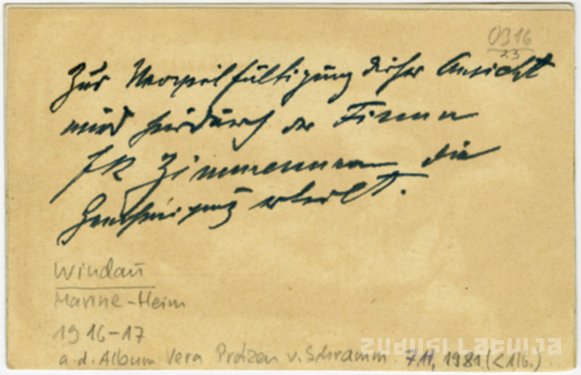 0316
23
Zur Vervielfältigung dieser Ansicht
wird hierdurch der Firma
FR Zimmermann die
Genehmigung erteilt.
Windau
Marine-Heim
1916-17
a.d. Album Vera Protzen v. Schramm 711, 1981 (<Alb.)
zudusi latvija